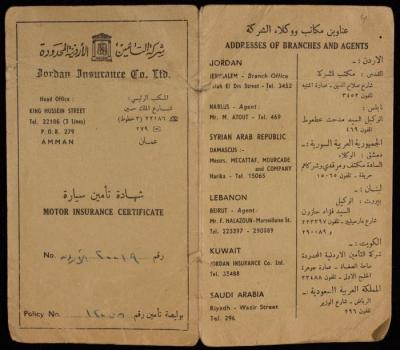 شركة التأمين الأردنية المحدودة
Jordan Insurance Co. Ltd.
Head Office :
KING HUSSEIN STREET
Tel. 22186 (3 Lines)
P. O. B. 279
AMMAN
المكتب الرئيسي:
شارع الملك حسين
تلفون ٢٢١٨٦ (٣ خطوط)
ص.ب ٢٧٩
عمان
شهادة تأمين سيارة
MOTOR INSURANCE CERTIFICATE
No.
رقم
Policy No.
بوليصة تأمين رقم
عناوين مكاتب ووكلاء الشركة
ADDRESSES OF BRANCHES AND AGENTS
JORDAN
JERUSALEM - Branch Office
Salah El Din Street - Tel. 3452
NABLUS - Agent :
Mr. M. ATOUT - Tel. 469
SYRIAN ARAB REPUBLIC
DAMASCUS :-
Messrs. MECATTAF, MOURCADE
and COMPANY
Harika - Tel 15065
LEBANON
BEIRUT - Agent:
Mr. F. HALAZOUN - Marseillaise St.
Tel. 223297 - 290089
KUWAIT
JORDAN INSURANCE Co. Ltd.
Tel. 33488
SAUDI ARABIA
Riyadh - Wazir Street
Tel. 296
الاردن :ـ
القدس : مكتب الشركة
شارع صلاح الدين -
تلفون ٣٤٥٢
نابلس :
الوكيل السيد مدحت عطعوط
تلفون ٤٦٩
الجمهورية العربية السورية :ـ
دمشق : الوكلاء
السادة مكتف ومرقدي وشركاهم
حريقة - تلفون ١٥٠٦٥
لبنان :ـ
بيروت : الوكيل
السيد فؤاد حلزون
شارع مارسيلييز - تلفون ٢٢٣٢٩٧
٢٩٠٠٨٩ -
الكويت :ـ
شركة التأمين الاردنية المحدودة
ساحة الصفاة -
تلفون ٣٣٤٨٨
المملكة العربية السعودية :ـ
الرياض - شارع الوزير
تلفون ٢٩٦